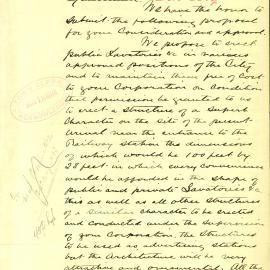 We have the honor to
Submit the following proposal
for your Consideration and approval.
We propose to erect
public Lavatories &c in various
approved positions of the City
and to maintain them free of Cost
to your Corporation on Condition
that permission be granted to us
to erect a Structure of a Superb
Character on the Site of the present
Urinal near the entrance to the
Railway Station the dimensions
of which would be 100 feet by
25 feet in which every convenience
would be afforded in the Shape of
public and private Lavatories &c
this as well as all other Structures
of a Similar character to be erected
and conducted under the Supervision
of your Corporation, the Structures
to be used as advertising Stations
but the Architecture will be very
attractive and ornamental. All the